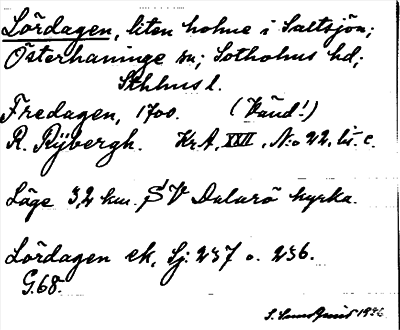 Lördagen, liten holme i Saltsjön;
Österhaninge sn; Sotholms hd;
Sthlms l.
Fredagen, 1700. (Vänd!)
R. Rÿbergh. Kr.A, XXII, N:o 22, lit. c.
Läge 3,2 km. SV Dalarö kyrka.
Lördagen ek, Sj. 237 o. 236.
G.68.
S. 1936